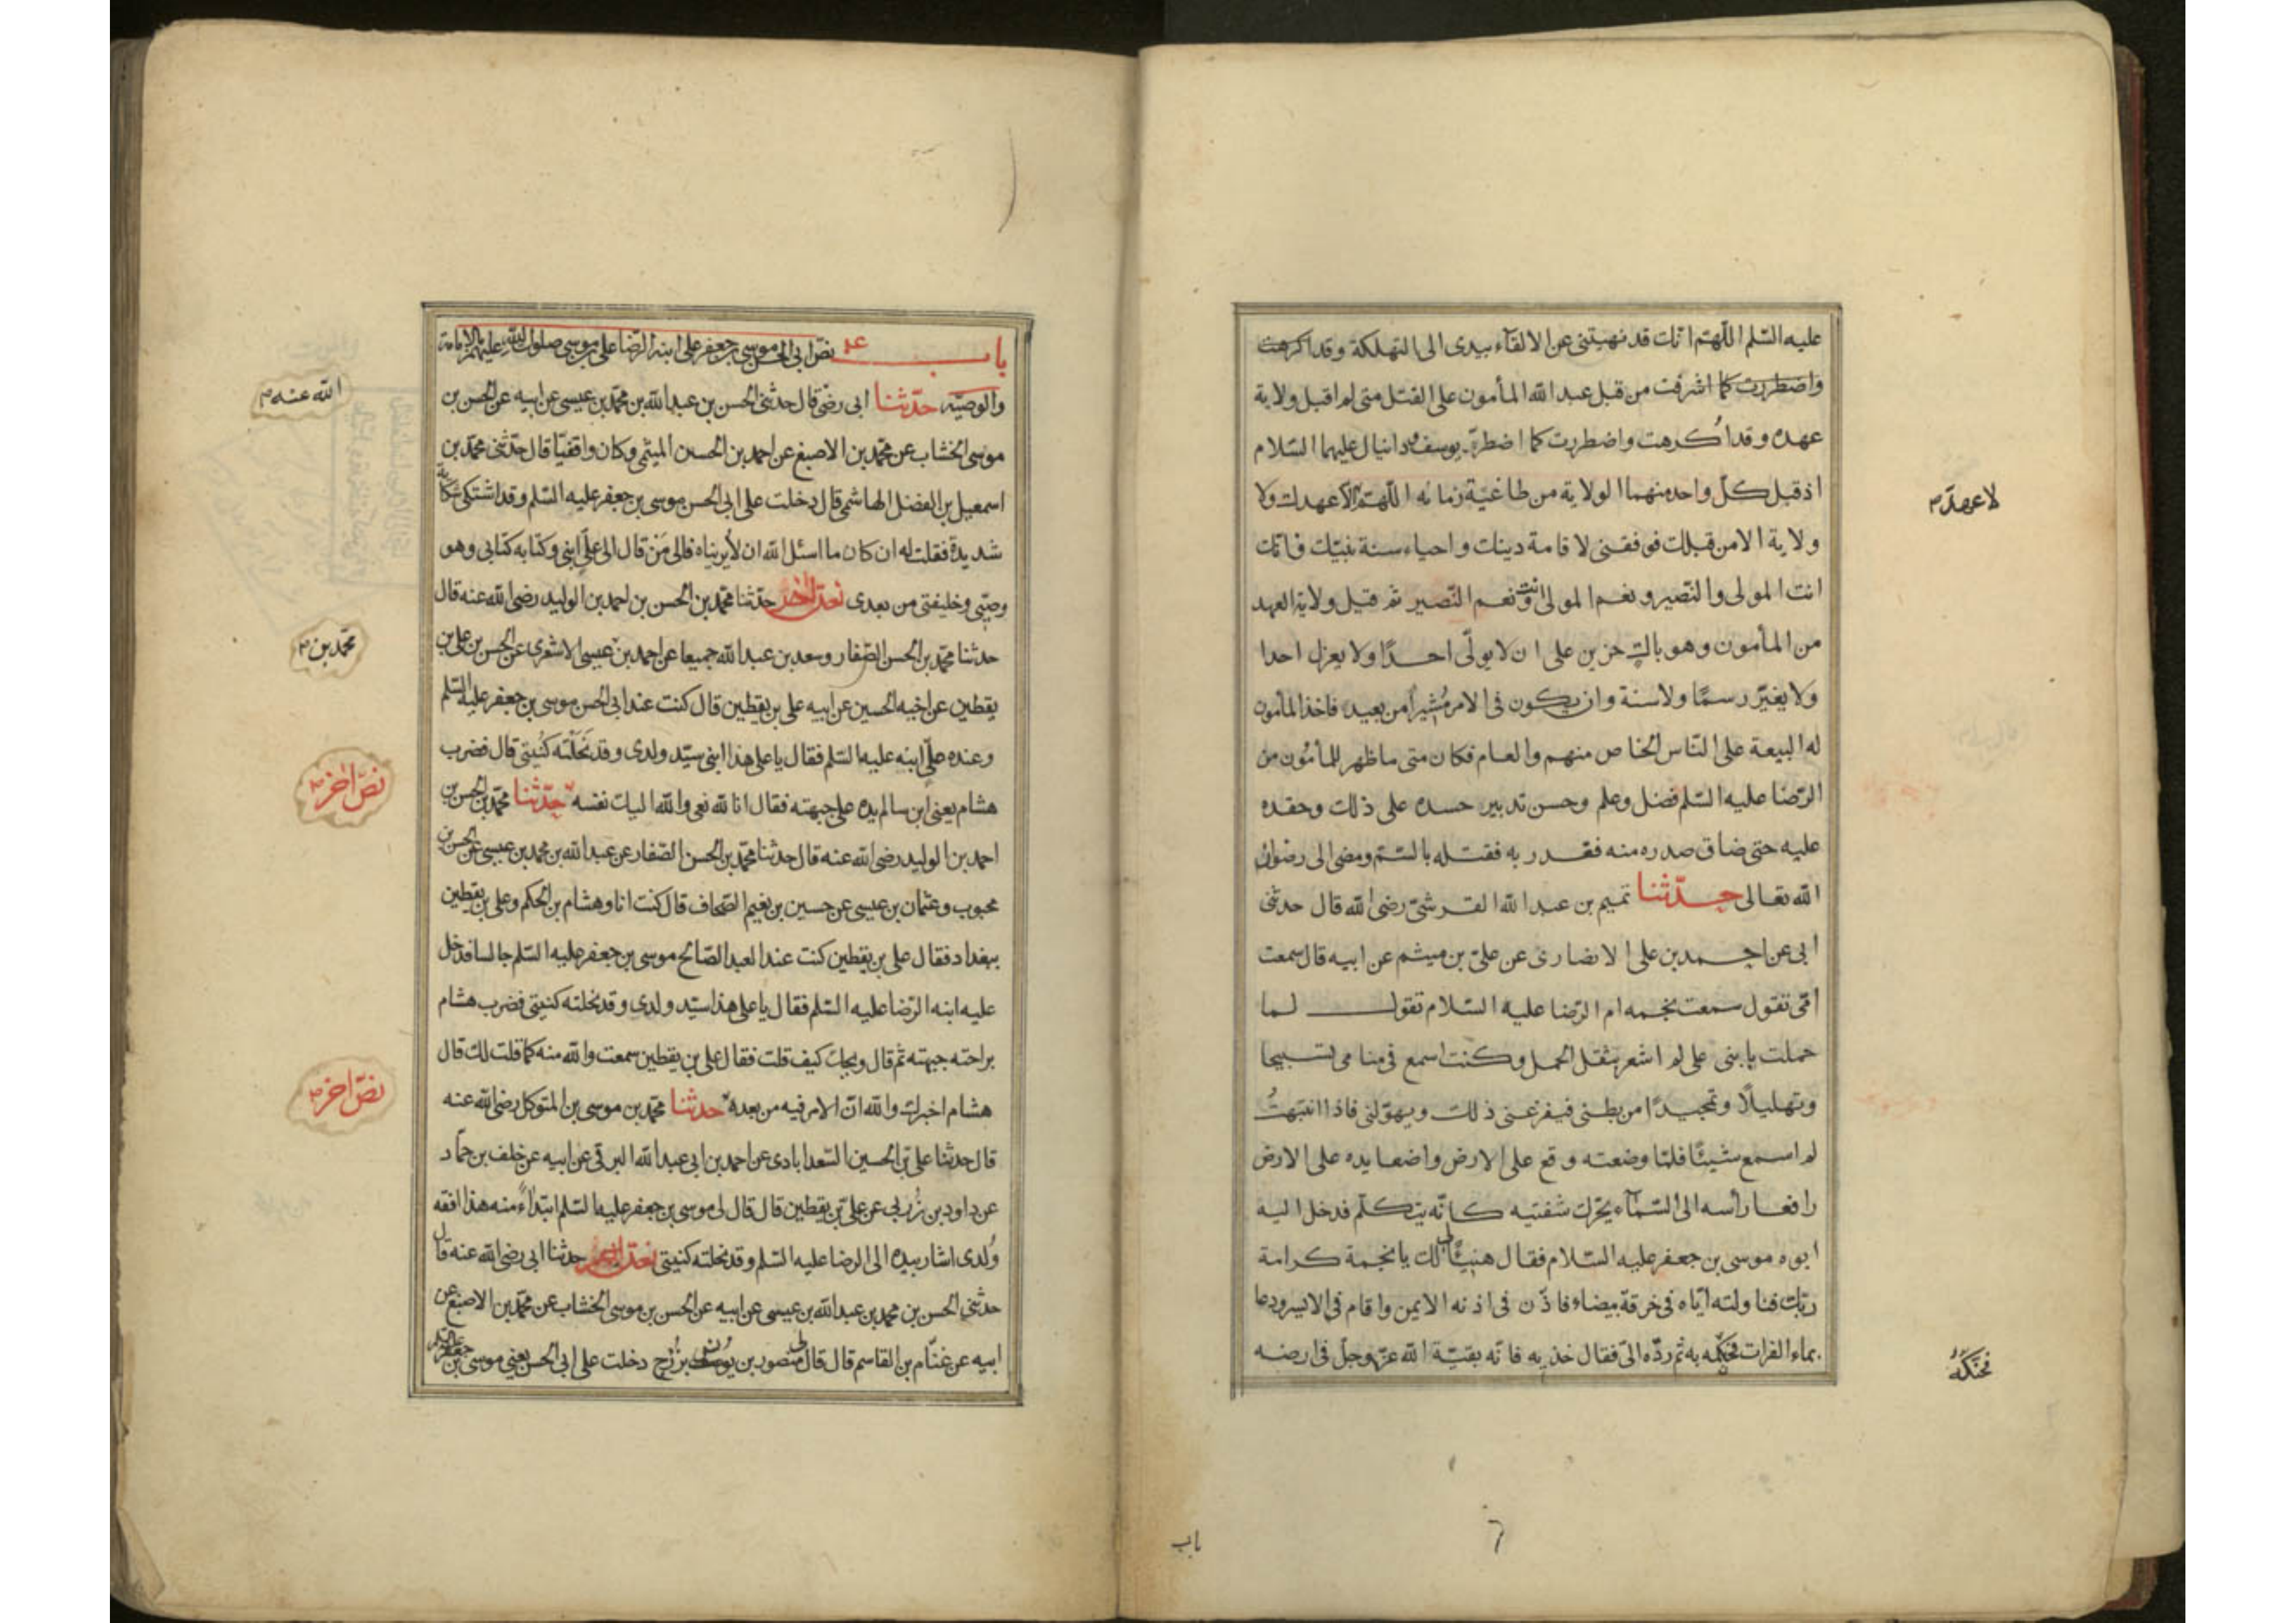 عليه السّلم اللّهمّ انّك قد نهيتنى عن الالقآء بيدى الى التهلكة وقد اكرهت
واضطررت كما اشرفت من قبل عبد الله المأمون على القتل متى لم اقبل ولاية
عهده وقد اُكرهت واضطررت كما اضطرّ يوسف ودانيال عليهما السّلام
اذ قبل كلّ واحد منهما الولاية من طاغية زمانه اللّهمّ لا عهد الا عهدك ولا
ولاية الا من قبلك فوفقنى لاقامة دينك واحياء سنة نبيّك فانّك
انت المولى والنّصير ونعم المولى انت ونعم النّصير ثم قبل ولاية العهد
من المأمون وهو باكٍ حزين على ان لا يولّى احدًا ولا يعزل احدا
ولا يغيّر رسمًا ولا سنة وان يكون فى الامر مُشيرًا من بعيد فاخذ المأمون
له البيعة على النّاس الخاص منهم والعام فكان متى ما ظهر للمأمُون من
الرّضا عليه السّلم فضل وعلم وحسن تدبير حسده على ذلك وحقده
عليه حتى ضاق صدره منه فغدر به فقتله بالسّمّ ومضى الى رضوان
الله تعالى حدّثنا تميم بن عبد الله القرشىّ رضى الله قال حدثنى
ابى عن احمد بن على الانصارى عن علىّ بن ميثم عن ابيه قال سمعت
امّى تقول سمعت نجمه ام الرّضا عليه السّلام تقول لما
حملت بابنى على لم اشعر بثقل الحمل وكنت اسمع فى منامى تسبيحا
وتهليلًا وتمجيدًا من بطنى فيفزعنى ذلك ويهوّلنى فاذا انتبهتُ
لم اسمع شيئًا فلمّا وضعته وقع على الارض واضعا يده على الارض
رافعا رأسه الى السّمآء يحرّك شفتيه كانّه يتكلّم فدخل اليه
ابوه موسى بن جعفر عليه السّلام فقال لى هنيئًا لك يا نجمة كرامة
ربّك فناولته ايّاه فى خرقة بيضاء فاذّن فى اذنه الايمن واقام فى الايسر ودعا
بماء الفرات فحنكّه به ثم ردّه الىّ فقال خذيه فانّه بقيّة الله عزّ وجلّ فى ارضه
فحنّكهُ
باب
باب نصّ ابى الحسن موسى بن جعفر على ابنه الرّضا على بن موسى صلوات الله عليهم بالامامة
والوصيّة حدّثنا ابى رضى قال حدثنى الحسن بن عبد الله بن محمّد بن عيسى عن ابيه عن الحسن بن
الله عنه
موسى الخشاب عن محمّد بن الاصبغ عن احمد بن الحسين الميثمى وكان واقفيّا قال حدّثنى محمّد بن
اسمعيل بن الفضل الهاشمى قال دخلت على ابى الحسن موسى بن جعفر عليه السّلم وقد اشتكى شكاية
شديدة فقلت له ان كان ما اسئل الله ان لا يريناه فالى مَنْ قال الى علىّ ابنى وكتابه كتابى وهو
وصيّى وخليفتى من بعدى نصّ اخر حدّثنا محمّد بن الحسن بن احمد بن الوليد رضى الله عنه قال
حدثنا محمّد بن الحسن الصّفار وسعد بن عبد الله جميعا عن احمد بن عيسى الاشعرى عن الحسن بن على بن
محمّد بن
يقطين عن اخيه الحسين عن ابيه على بن يقطين قال كنت عند ابى الحسن موسى بن جعفر عليه السّلم
وعنده علىّ ابنه عليه السّلم فقال يا على هذا ابنى سيّد ولدى وقد نَحَلْتُه كُنْيتى قال فضرب
هشام يعنى ابن سالم يده على جبهته فقال انا لله نعى والله اليك نفسه حدّثنا محمّد بن الحسن بن
نصّ اخر
احمد بن الوليد رضى الله عنه قال حدثنا محمّد بن الحسن الصّفار عن عبد الله بن محمد بن عيسى عن الحسن بن
محبوب وعثمان بن عيسى عن حسين بن نعيم الصّحاف قال كنت انا وهشام بن الحكم وعلى بن يقطين
ببغداد فقال على بن يقطين كنت عند العبد الصّالح موسى بن جعفر عليه السّلم جالسا فدخل
عليه ابنه الرّضا عليه السّلم فقال يا على هذا سيّد ولدى وقد نحلته كنيتى فضرب هشام
براحته جبهته ثم قال ويحك كيف قلت فقال على بن يقطين سمعت والله منه كما قلت لك قال
هشام اخبرك والله انّ الامر فيه من بعده حدثنا محمّد بن موسى بن المتوكل رضى الله عنه
نصّ اخر
قال حدثنا علىّ بن الحسين السّعدابادى عن احمد بن ابى عبد الله البرقى عن ابيه عن خلف بن حمّاد
عن داود بن زُربى عن علىّ بن يقطين قال قال لى موسى بن جعفر عليه السّلم ابتداءً منه هذا افقه
وُلدى اشار بيده الى الرضا عليه السّلم وقد نحلته كنيتى نصّ اخر حدثنا ابى رضى الله عنه قال
حدثنى الحسن بن محمد بن عبد الله بن عيسى عن ابيه عن الحسن بن موسى الخشاب عن محمّد بن الاصبغ عن
ابيه عن غنّام بن القاسم قال قال لى منصور بن يُونس بن بُزُرج دخلت على ابى الحسن يعنى موسى بن جعفر عليه السّلم